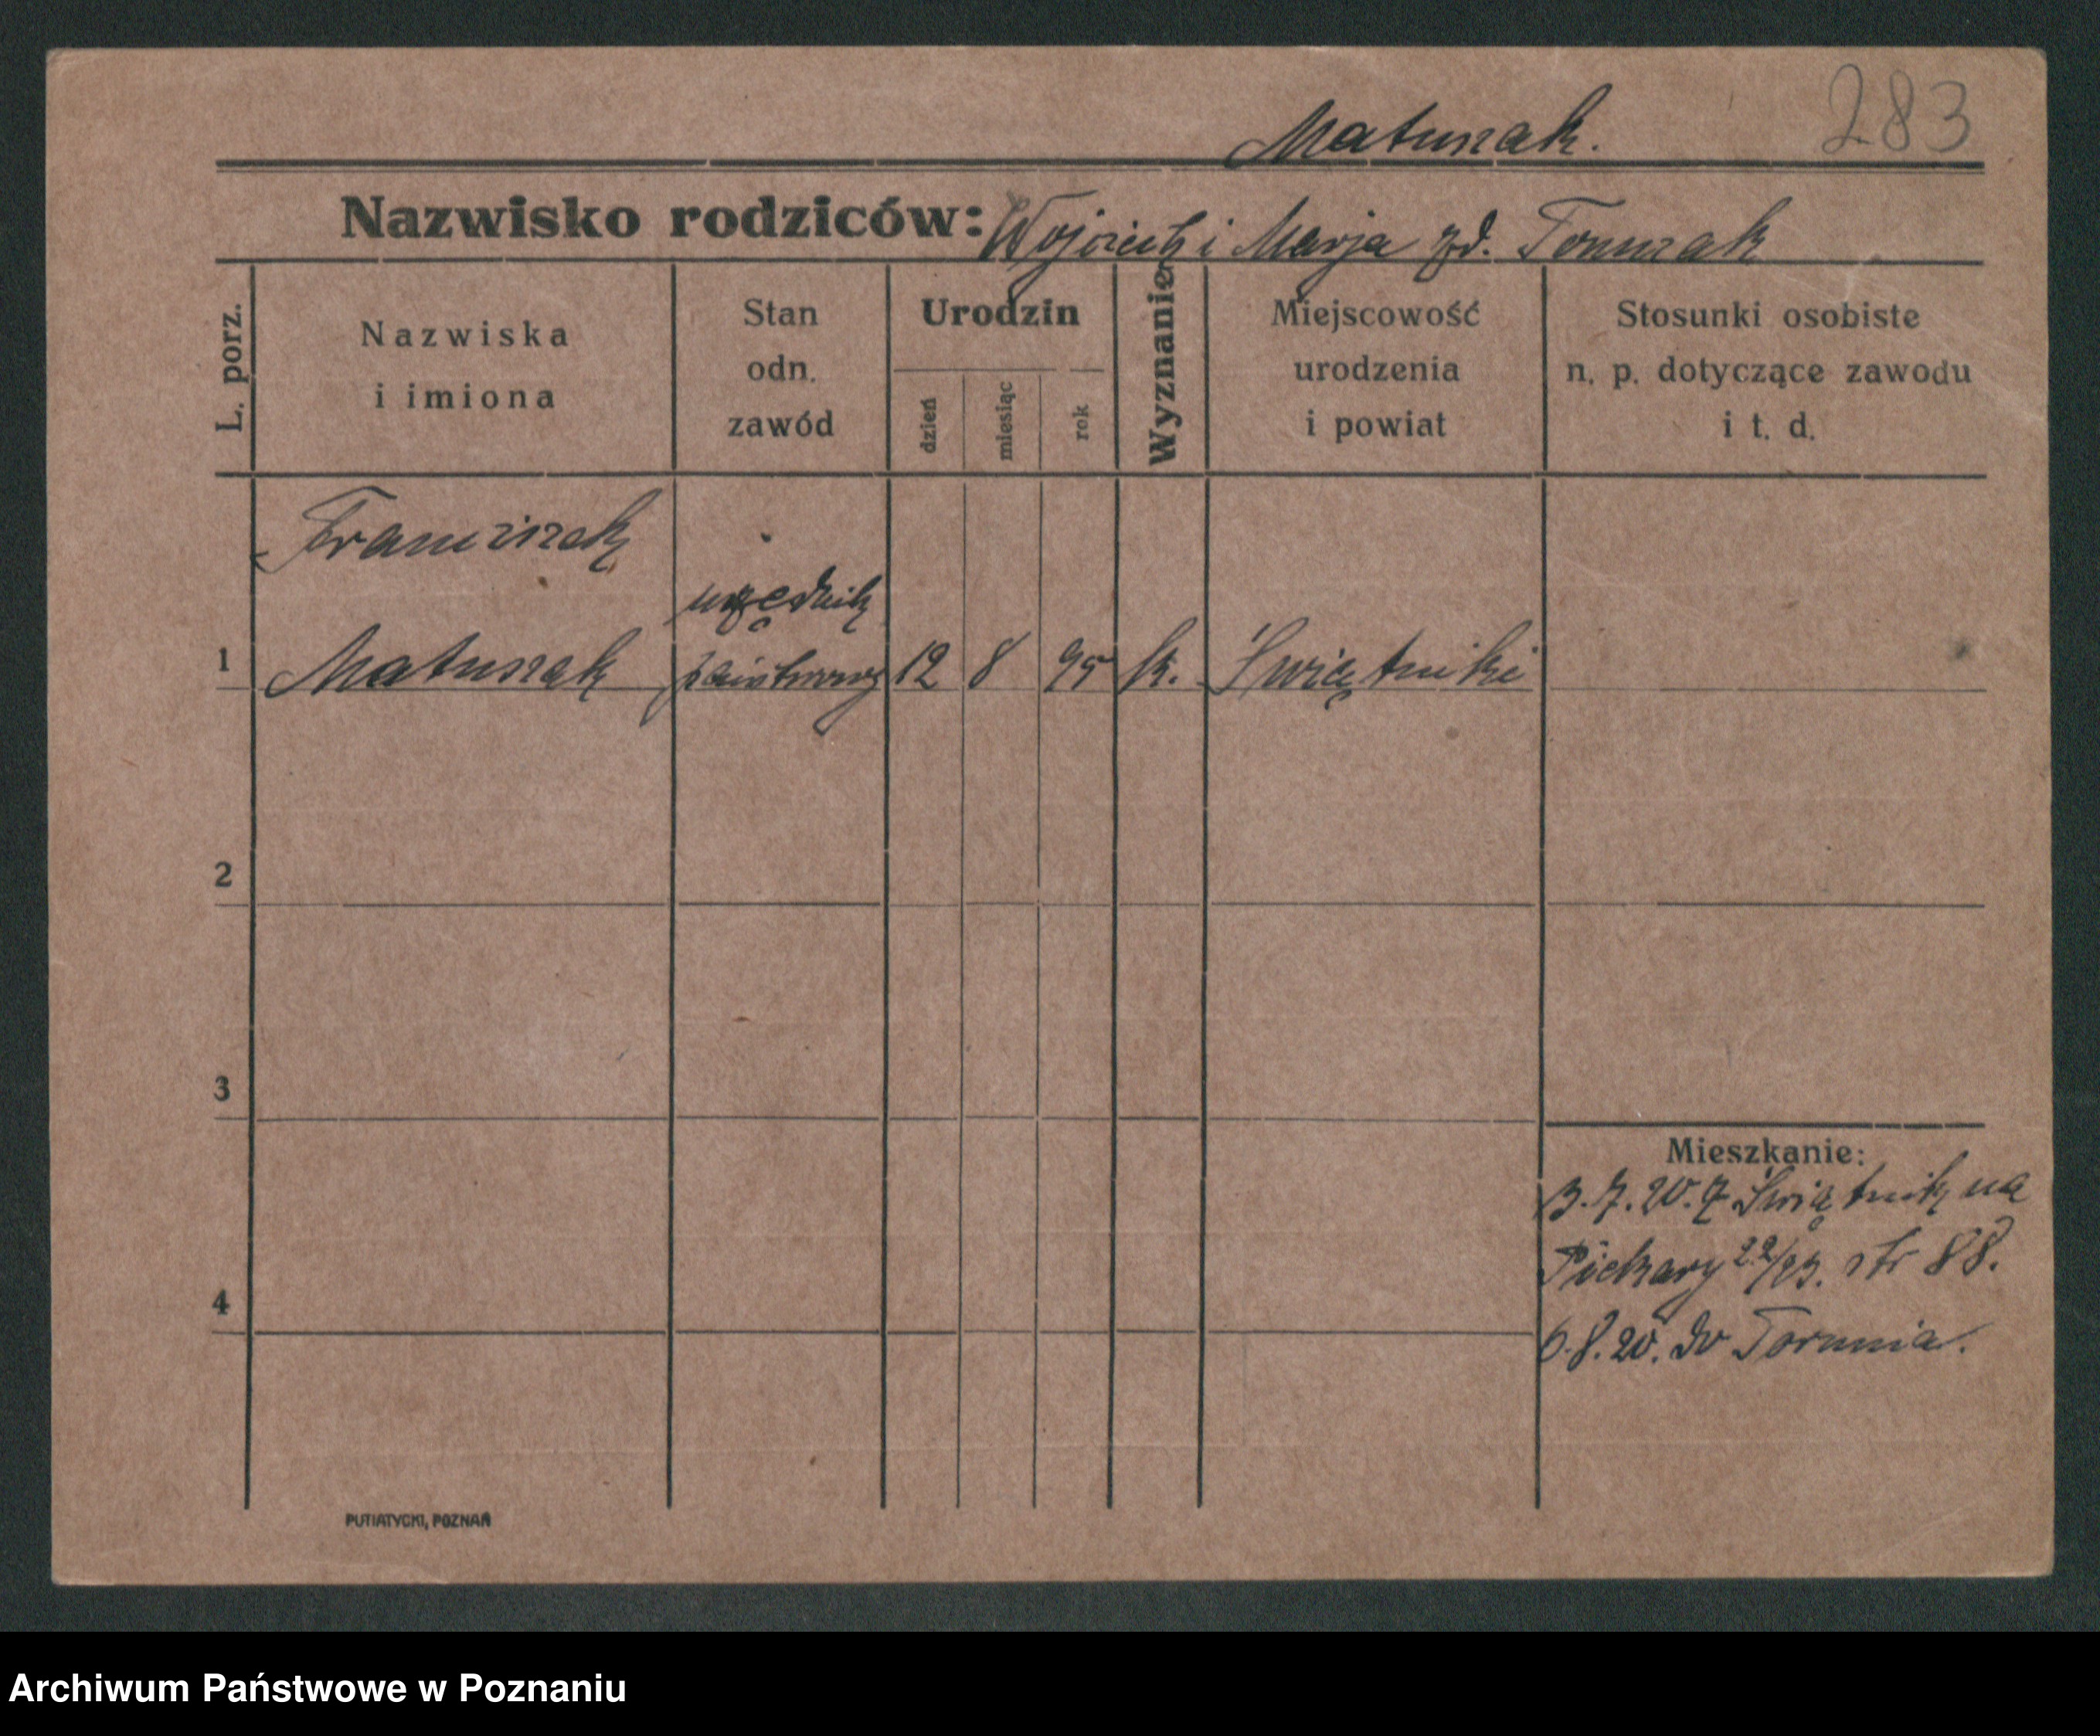 283
Matuszak.
Nazwisko rodziców: Wojciech i Marja zd. Tomczak
L. porz.
Nazwiska
i imiona
Stan
odn.
zawód
Urodzin
dzień
miesiąc
rok
Wyznanie
Miejscowość
urodzenia
i powiat
Stosunki osobiste
n. p. dotyczące zawodu
i t. d.
Franciszek
urzędnik
1 Matuszak państwowy 12 8 95 k. Świątniki
2
3
4
Mieszkanie:
3.7.20. z Świątnik na
Piekary 22/23. str 88.
6.8.20. do Torunia.
PUTIATYCKI, POZNAŃ
Archiwum Państwowe w Poznaniu